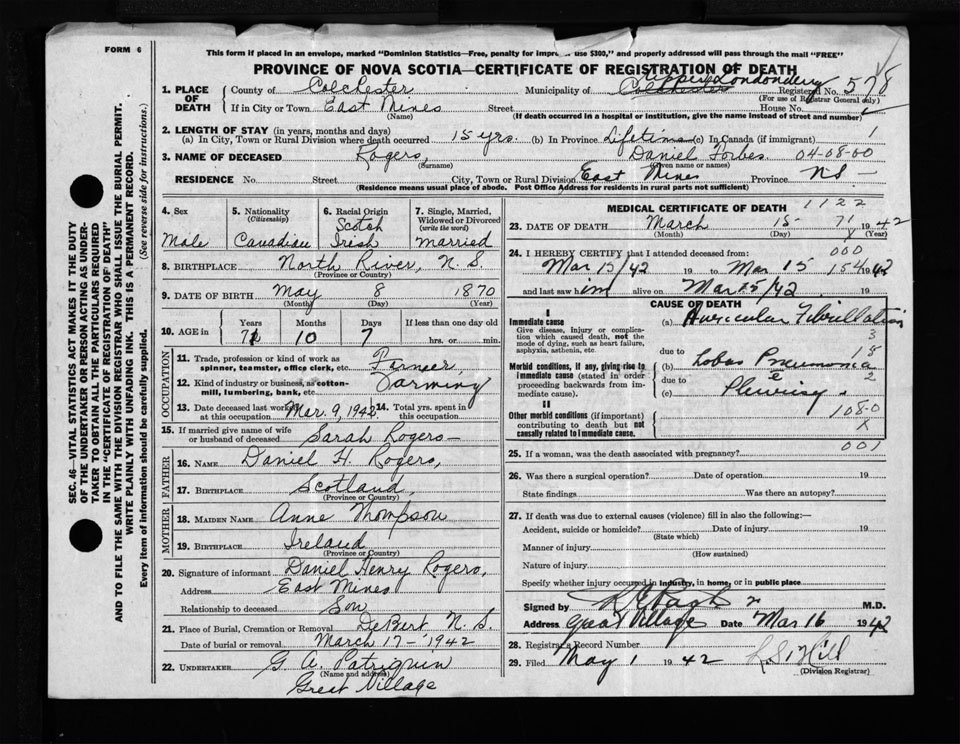 FORM 6
This form if placed in an envelope, marked "Dominion Statistics—Free, penalty for impr use $300," and properly addressed will pass through the mail "FREE"
PROVINCE OF NOVA SCOTIA—CERTIFICATE OF REGISTRATION OF DEATH
SEC. 46—VITAL STATISTICS ACT MAKES IT THE DUTY
OF THE UNDERTAKER OR PERSON ACTING AS UNDER-
TAKER TO OBTAIN ALL THE PARTICULARS REQUIRED
IN THE "CERTIFICATE OF REGISTRATION OF DEATH"
AND TO FILE THE SAME WITH THE DIVISION REGISTRAR WHO SHALL ISSUE THE BURIAL PERMIT.
WRITE PLAINLY WITH UNFADING INK. THIS IS A PERMANENT RECORD.
Every item of information should be carefully supplied. (See reverse side for instructions.)
1. PLACE OF DEATH
County of Colchester Municipality of Colchester Upper Londonderry Registered No. 578
(For use of Registrar General only)
If in City or Town East Mines Street House No.
(Name) (If death occurred in a hospital or institution, give the name instead of street and number)
2. LENGTH OF STAY (in years, months and days)
(a) In City, Town or Rural Division where death occurred 15 yrs. (b) In Province Lifetime (c) In Canada (if immigrant) 1
3. NAME OF DECEASED Rogers, Daniel Forbes 04-08-00
(Surname) (Given name or names)
RESIDENCE No. Street City, Town or Rural Division East Mines Province N.S.
(Residence means usual place of abode. Post Office Address for residents in rural parts not sufficient)
4. Sex Male
5. Nationality (Citizenship) Canadian
6. Racial Origin Scotch Irish
7. Single, Married, Widowed or Divorced (write the word) married
8. BIRTHPLACE North River, N.S.
(Province or Country)
9. DATE OF BIRTH May 8 1870
(Month) (Day) (Year)
10. AGE in Years Months Days If less than one day old
71 10 7 hrs. or min.
OCCUPATION
11. Trade, profession or kind of work as spinner, teamster, office clerk, etc. Farmer,
12. Kind of industry or business, as cotton-mill, lumbering, bank, etc. Farming
13. Date deceased last worked at this occupation Mar. 9, 1942 14. Total yrs. spent in this occupation
15. If married give name of wife or husband of deceased Sarah Rogers
FATHER
16. NAME Daniel H. Rogers,
17. BIRTHPLACE Scotland,
(Province or Country)
MOTHER
18. MAIDEN NAME Anne Thompson
19. BIRTHPLACE Ireland
(Province or Country)
20. Signature of informant Daniel Henry Rogers,
Address East Mines
Relationship to deceased Son
21. Place of Burial, Cremation or Removal DeBert N.S.
Date of burial or removal March 17-1942
22. UNDERTAKER G. A. Patriquin
(Name and address)
Great Village
MEDICAL CERTIFICATE OF DEATH 1122
23. DATE OF DEATH March 15 71 1942
(Month) (Day) (Year)
24. I HEREBY CERTIFY that I attended deceased from: 000
Mar 15/42 19 to Mar 15 154 1942
and last saw him alive on Mar 15/42
CAUSE OF DEATH
I
Immediate cause (a) Auricular Fibrillation
Give disease, injury or complication which caused death, not the mode of dying, such as heart failure, asphyxia, asthenia, etc. 3
due to 18
Morbid conditions, if any, giving rise to immediate cause (stated in order proceeding backwards from immediate cause). (b) Lobar Pneumonia
due to 2
(c) Pleurisy
II
Other morbid conditions (if important) contributing to death but not causally related to immediate cause. 108-0
X
25. If a woman, was the death associated with pregnancy? 001
26. Was there a surgical operation? Date of operation 19
State findings Was there an autopsy?
27. If death was due to external causes (violence) fill in also the following:—
Accident, suicide or homicide? Date of injury 19
(State which)
Manner of injury
(How sustained)
Nature of injury
Specify whether injury occurred in industry, in home, or in public place
Signed by M.D.
Address Great Village Date Mar 16 1942
28. Registrar's Record Number
29. Filed May 1 1942 Hill
(Division Registrar)